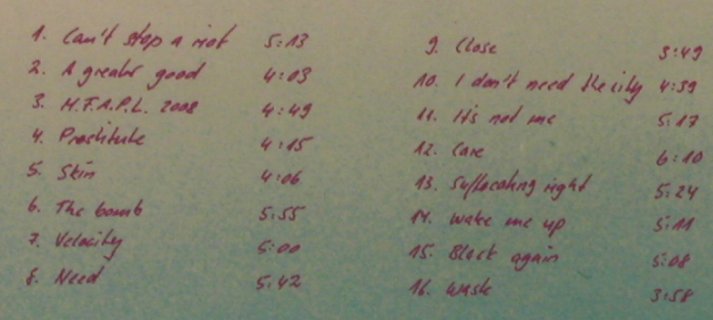 1. Can't stop a riot 5:13
2. A greater good 4:03
3. M.F.A.P.L. 2008 4:49
4. Prostitute 4:15
5. Skin 4:06
6. The bomb 5:55
7. Velocity 5:00
8. Need 5:42
9. Close 3:49
10. I don't need the city 4:39
11. It's not me 5:17
12. Care 6:10
13. Suffocating right 5:24
14. Wake me up 5:11
15. Black again 5:08
16. Waste 3:58